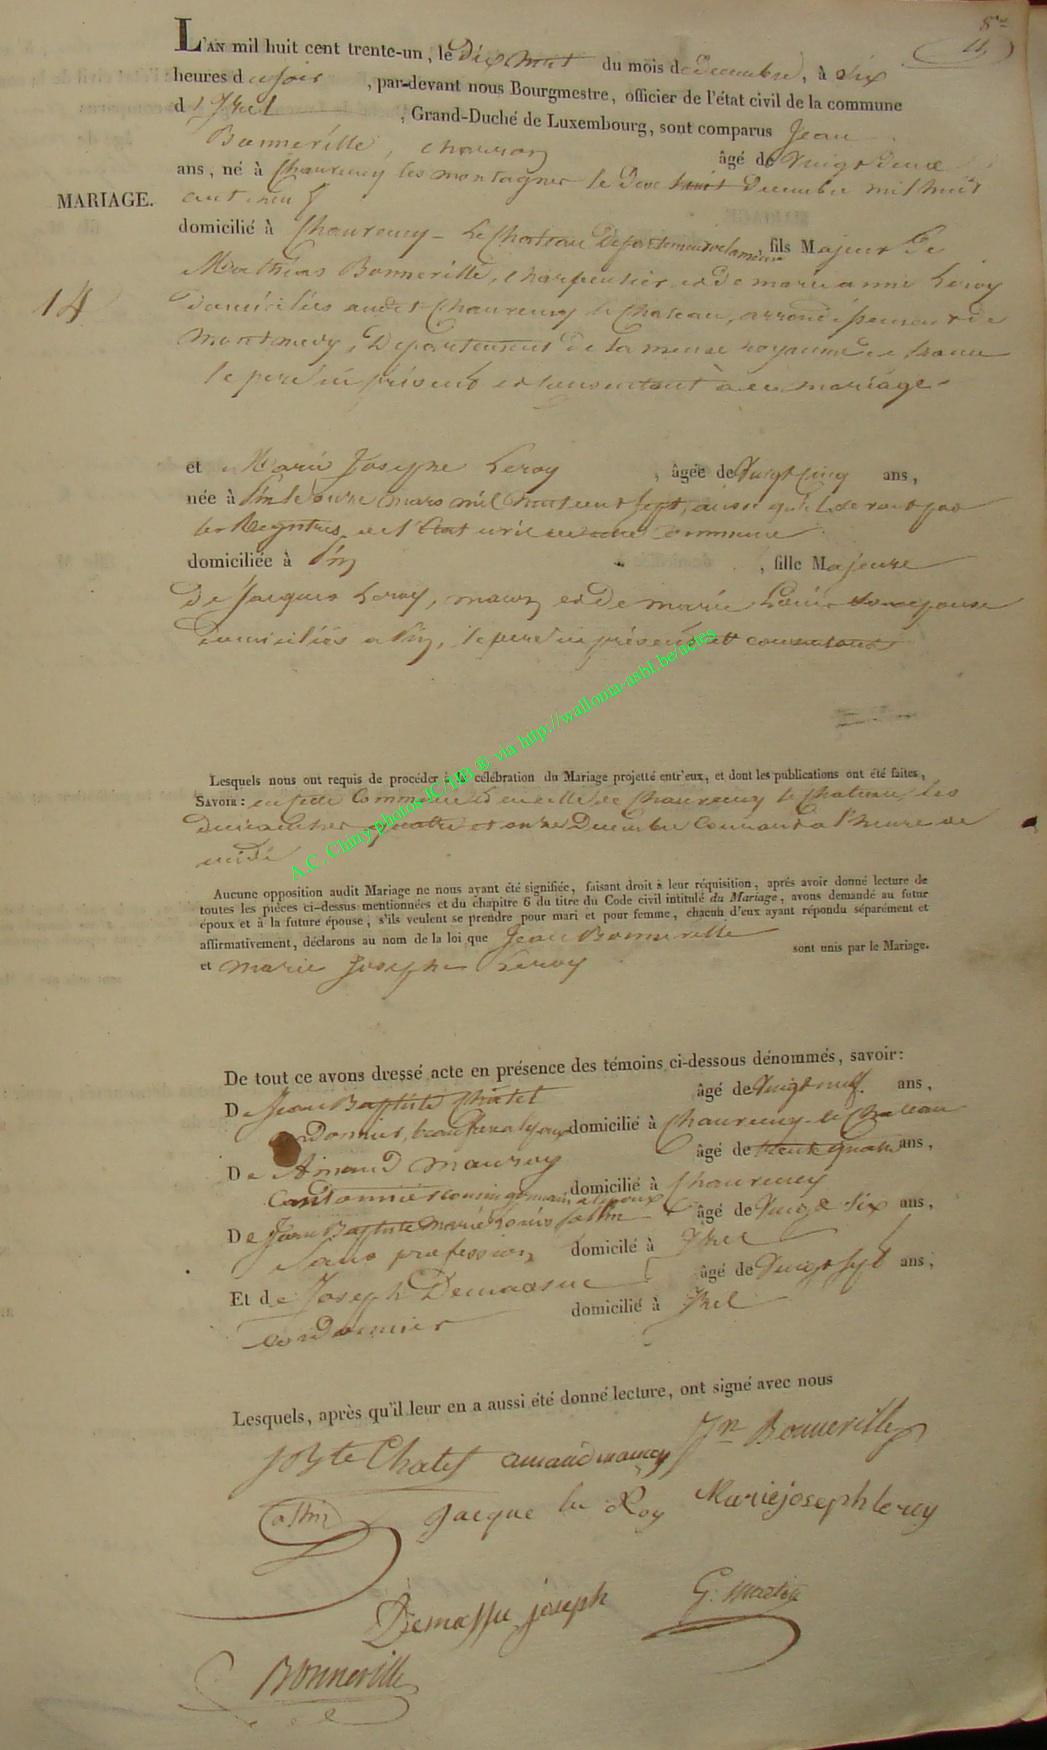 8e
11.
L'AN mil huit cent trente-un, le Dix huit du mois de Decembre, à Six
heures du soir, par-devant nous Bourgmestre, officier de l'état civil de la commune
d'Izel, Grand-Duché de Luxembourg, sont comparus Jean
Bonneville, charron âgé de Vingt Deux
ans, né à Chauvency les montagnes le Douze Decembre mil huit
cent neuf
MARIAGE.
domicilié à Chauvency - le Chateau Departement de la meuse fils Majeur De
Mathias Bonneville, charpentier, et de marie anne Leroy
Domiciliés audit Chauvency le Chateau, arrondissement de
14
montmedy, Departement de la meuse royaume de france
le pere ici présent et consentant à ce mariage.
et Marie Josephe Leroy, âgée de Vingt Cinq ans,
née à Pin le onze mars mil huit cent sept, ainsi qu'il se voit par
les Registres de l'Etat civil de cette commune
domiciliée à Pin, fille Majeure
De Jacques Leroy, maçon et de marie son epouse
domiciliés a Pin, le pere ici présent et consentant
Lesquels nous ont requis de procéder à la célébration du Mariage projetté entr'eux, et dont les publications ont été faites,
SAVOIR: en cette Commune et en celle de Chauvency le Chateau les
Dimanches quatre et onze Decembre Courant a l'heure de
midi
Aucune opposition audit Mariage ne nous ayant été signifiée, faisant droit à leur réquisition, aprés avoir donné lecture de
toutes les pièces ci-dessus mentionnées et du chapitre 6 du titre du Code civil intitulé du Mariage, avons demandé au futur
époux et à la future épouse, s'ils veulent se prendre pour mari et pour femme, chacun d'eux ayant répondu séparément et
affirmativement, déclarons au nom de la loi que Jean Bonneville
et marie Josephe Leroy sont unis par le Mariage.
De tout ce avons dressé acte en présence des témoins ci-dessous dénommés, savoir:
De Jean Baptiste Chatel âgé de Vingt neuf ans,
cordonnier, beau frere a l'epoux domicilié à Chauvency-le Chateau
De Amand Maury âgé de trente quatre ans,
Cantonnier cousin germain a l'epoux domicilié à Chauvency
De Jean Baptiste Marie Louis âgé de Vingt Six ans,
Sans profession domicilé à Izel
Et de Joseph Demassue âgé de Vingt Sept ans,
cordonnier domicilié à Izel
Lesquels, après qu'il leur en a aussi été donné lecture, ont signé avec nous
JBte Chatel amand maury Jn Bonneville
Jacque le Roy Marie joseph leroy
Demassu joseph G.
Bonneville
A.C. Chiny photos JC/TJB ® via http://wallonia-asbl.be/actes